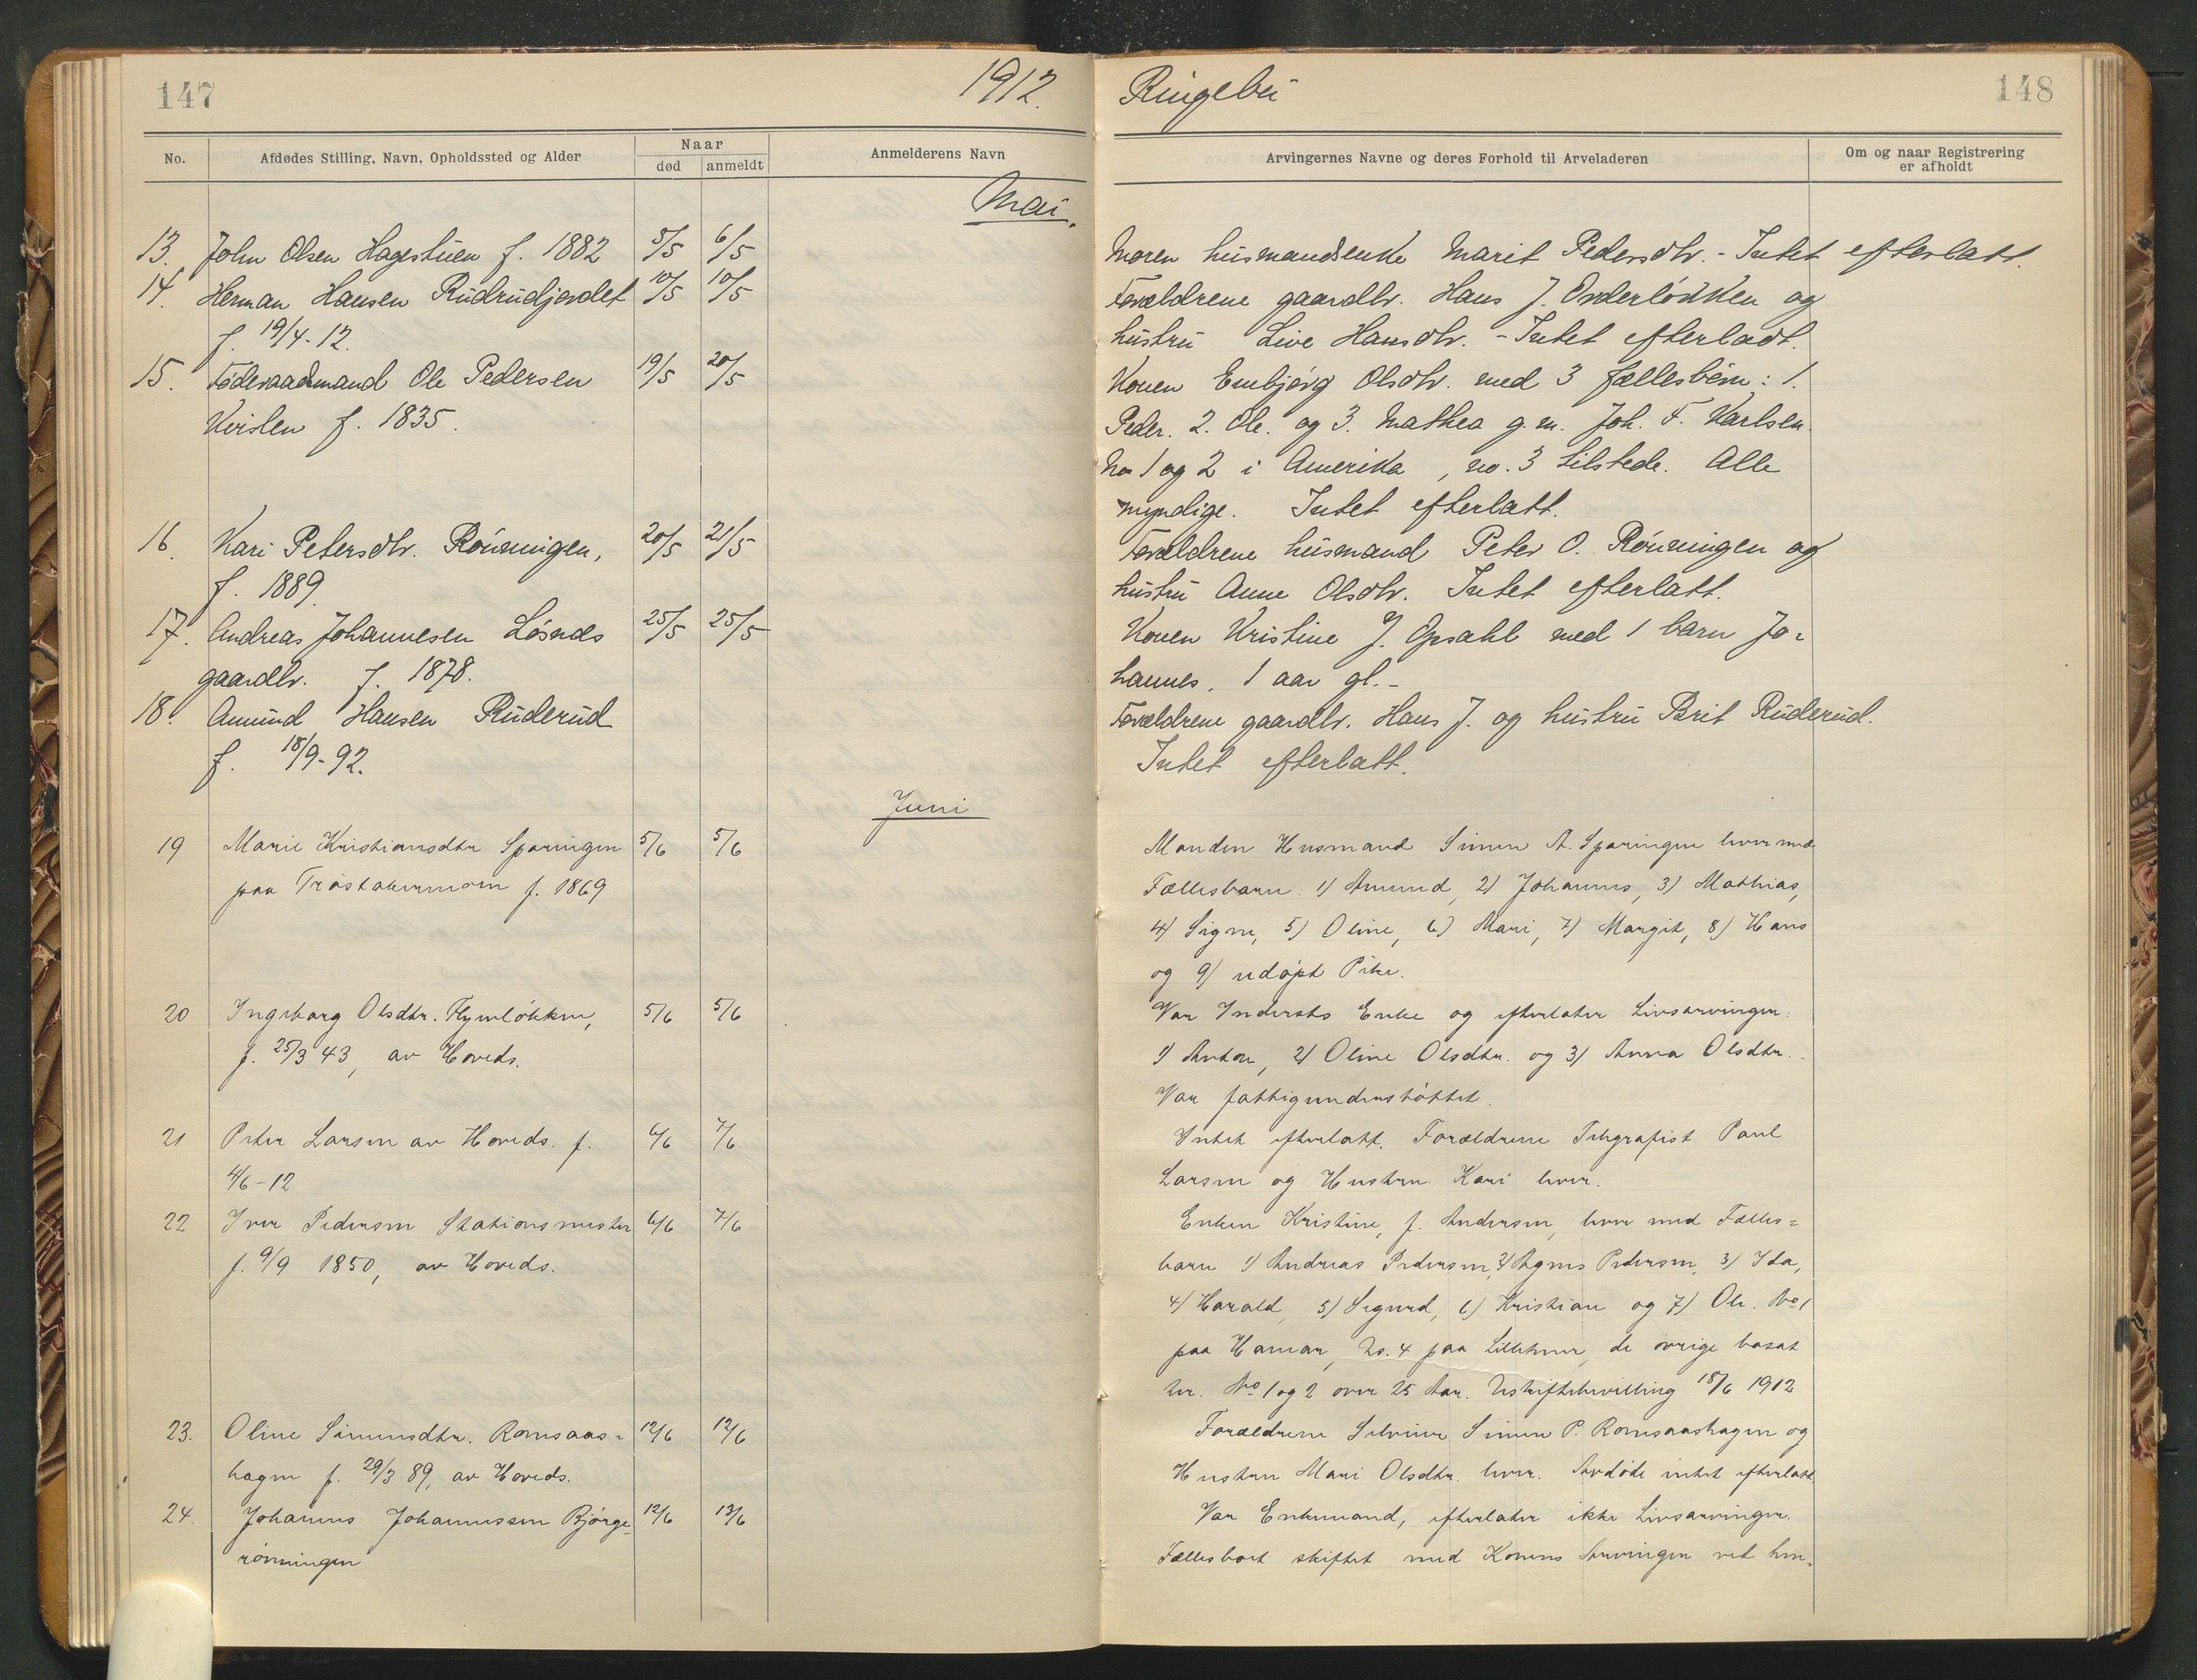 147
1912.
Ringebu
148
No.
Afdødes Stilling, Navn, Opholdssted og Alder
Naar
død
anmeldt
Anmelderens Navn
Arvingernes Navne og deres Forhold til Arveladeren
Om og naar Registrering
er afholdt
Mai.
13. John Olsen Hagestuen f. 1882 5/5 6/5 Moren husmandsenke Marit Pedersdtr. - Intet efterlatt.
14. Herman Hansen Rudrudjordet 10/5 10/5 Forældrene gaardbr. Hans J. Onderløkken og
f. 19/4-12. hustru Live Hansdtr. - Intet efterladt.
15. Føderaadsmand Ole Pedersen 19/5 20/5 Konen Embjørg Olsdtr. med 3 fællesbörn: 1.
f. 1835. Peder. 2. Ole. og 3. Mathea g.m. Joh. F. Karlsen.
No 1 og 2 i Amerika, no. 3 tilstede. Alle
myndige. Intet efterlatt.
16. Kari Petersdtr. Rönningen, 20/5 21/5 Forældrene husmand Peter O. Rönningen og
f. 1889. hustru Anne Olsdtr. Intet efterlatt.
17. Andreas Johannesen Løsnæs 25/5 25/5 Konen Kristine J. Opsahl med 1 barn Jo-
gaardbr. f. 1878. hannes, 1 aar gl. -
18. Amund Hansen Ruderud Forældrene gaardbr. Hans J. og hustru Brit Ruderud.
f. 18/9-92. Intet efterlatt.
Juni
19 Marie Kristiansdtr Sparingen 5/6 5/6 Manden Husmand Simen A. Sparingen lever med
paa f. 1869 Fællesbarn: 1) Amund, 2) Johannes, 3) Mathias,
4) Signe, 5) Oline, 6) Mari, 7) Margit, 8) Hans
og 9) udøpt Pike.
20 Ingeborg Olsdtr. Flymløkken, 5/6 5/6 Var Indersts Enke og efterlater Livsarvinger:
f. 25/3 43, av Hoveds. 1) Anton, 2) Oline Olsdtr. og 3) Anna Olsdtr.
Var fattigunderstøttet.
21 Peter Larsen av Hoveds. f. 6/6 7/6 Intet efterlatt. Forældrene Telegrafist Paul
4/6-12 Larsen og Hustru Kari lever.
22 Iver Pedersen Stationsmester 6/6 7/6 Enken Kristine, f. Andersen, lever med Fælles=
f. 9/9 1850, av Hoveds. barn 1) Andreas Pedersen, 2) Agnes Pedersen, 3) Ida,
4) Harald, 5) Sigurd, 6) Kristian og 7) Ole. No 1
paa Hamar, No. 4 paa Lillehmr, de øvrige bosat
her. No 1 og 2 over 25 Aar. Uskiftebevilling 18/6 1912
23. Oline Simensdtr. Romsaas= 12/6 12/6 Forældrene Selveier Simen P. Romsaashagen og
hagen f. 29/3 89, av Hoveds. Hustru Mari Olsdtr. lever. Avdøde intet efterlatt.
24. Johannes Johannessen Bjørge- 12/6 13/6 Var Enkemand, efterlater ikke Livsarvinger.
rönningen Fællesboet skiftet med Konens Arvinger ved hen-